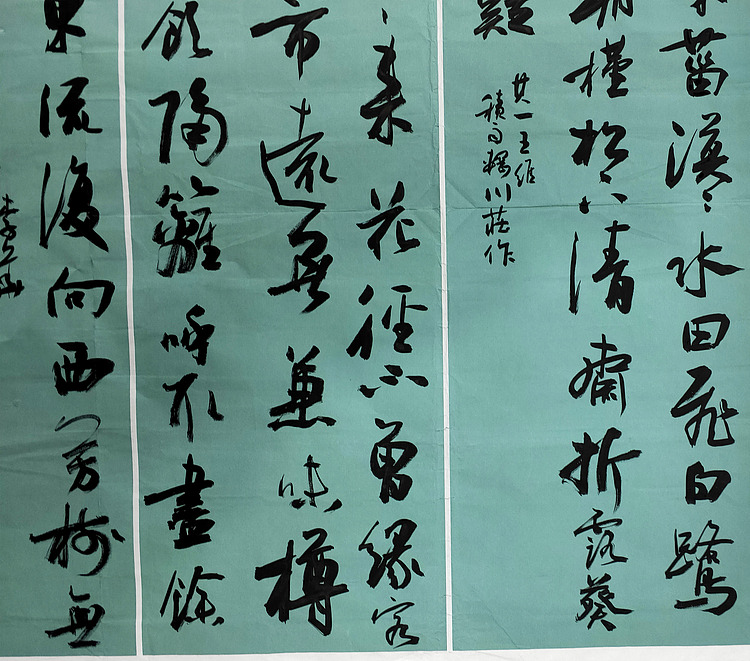 菑漠々水田飛白鷺
朝槿松下清齋折露葵
疑
其一王維
積雨輞川莊作
々來花徑不曾緣客
市遠無兼味樽
飲隔籬呼取盡餘
東流復向西芳樹無
李華